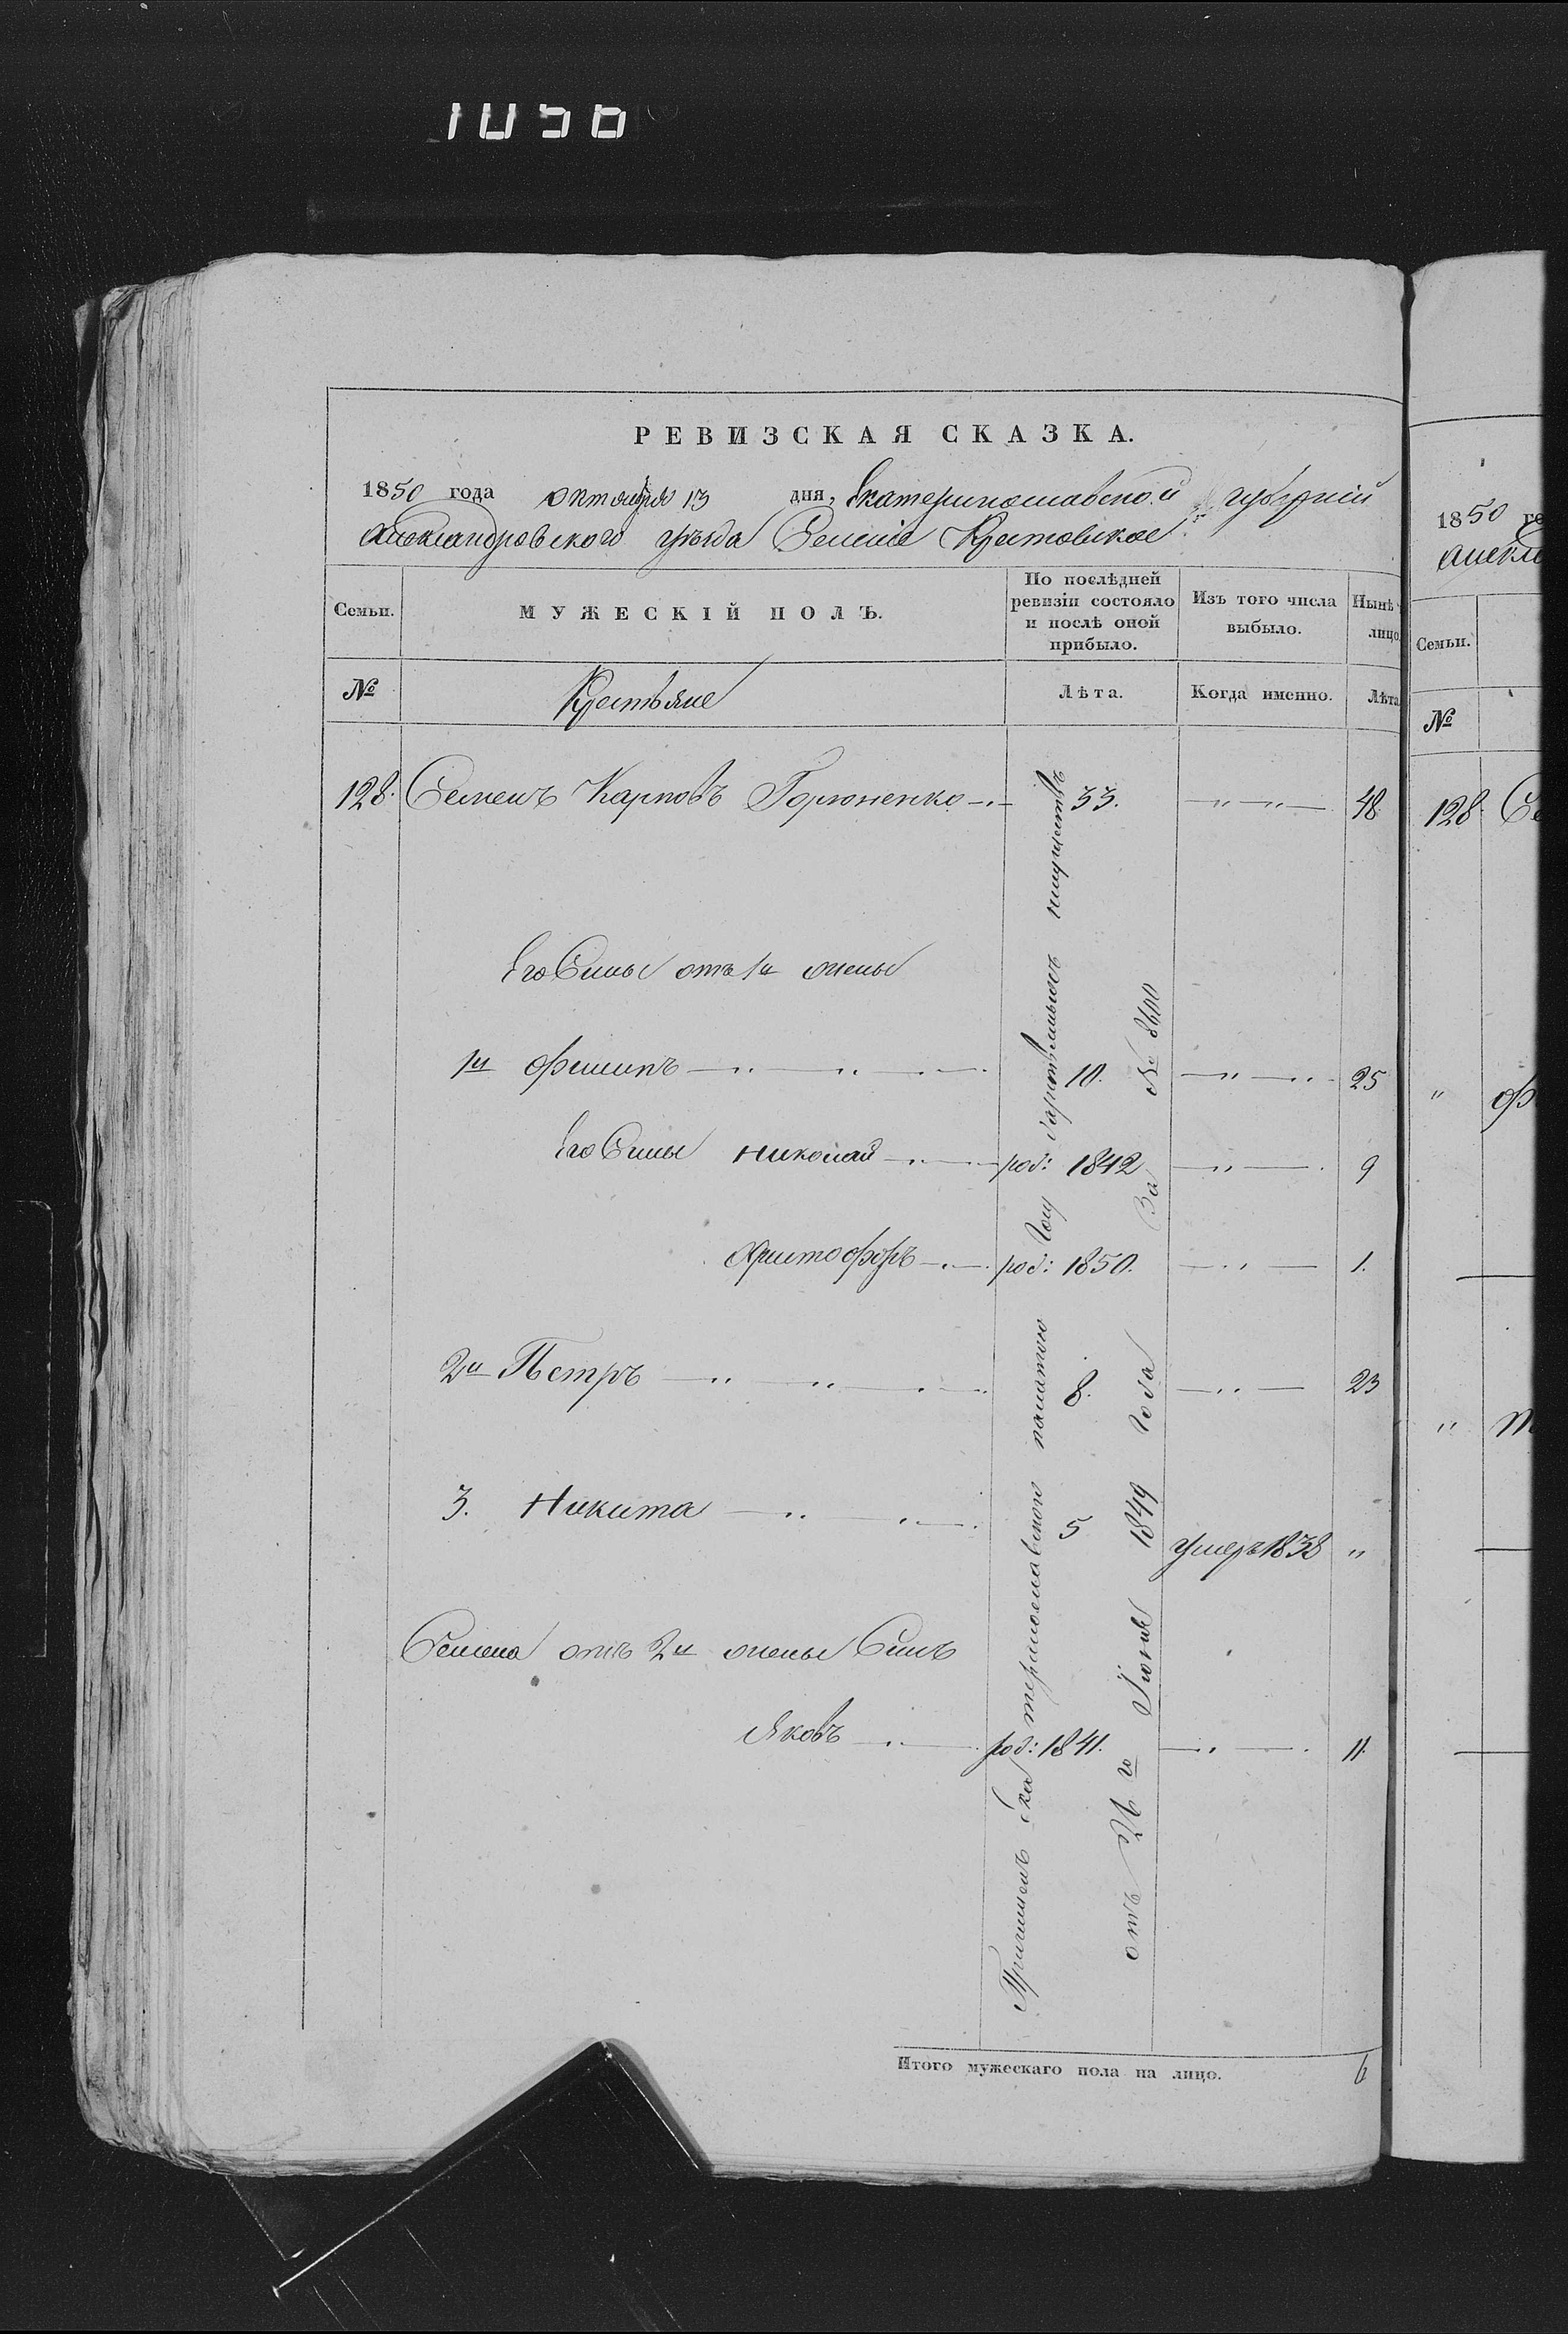 1056
РЕВИЗСКАЯ СКАЗКА.
1850 года октября 13 дня, Екатеринославской губерніи
Александровского уѣзда Селеніе Крестовское
Семьи. МУЖЕСКІЙ ПОЛЪ. По послѣдней ревизіи состояло и послѣ оной прибыло. Изъ того числа выбыло. Нынѣ лицо
№ Крестьяне Лѣта. Когда именно. Лѣта
128. Семенъ Карповъ Горюненко 33. 48.
Его Сины отъ 1й жены
1й Филипъ 10. 25
Его Сины Николай род: 1842 9
Христофоръ род: 1850. 1.
2й Петръ 8. 23
3. Никита 5 умеръ 1838 "
Семена отъ 2й жены Синъ
Яковъ род: 1841. 11.
Причисленъ Екатеринославскою палатою Государственныхъ имуществъ
отъ 24го Іюня 1849 года За № 8600
Итого мужескаго пола на лицо. 6
1850 го
Алекса
Семьи.
№
128. Се
" Ф
"